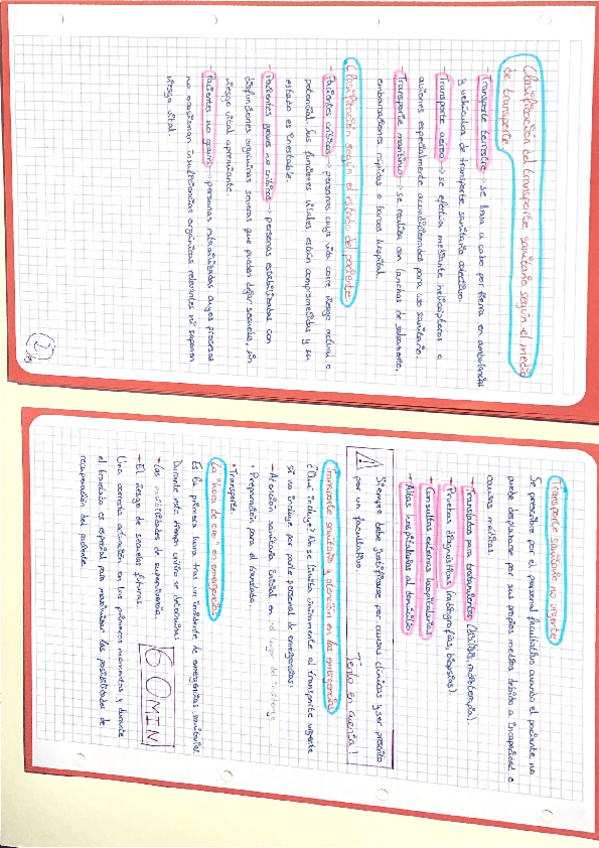 Clasificación del transporte sanitario según el medio
de transporte
- Transporte terrestre -> se lleva a cabo por tierra en ambulancias
y vehículos de transporte sanitario colectivo.
- Transporte aéreo -> se efectúa mediante helicópteros o
aviones especialmente acondicionados para uso sanitario.
- Transporte marítimo -> se realiza con lanchas de salvamento,
embarcaciones rápidas o barcos hospital.
Clasificación según el estado del paciente
- Pacientes críticos -> personas cuya vida corre riesgo actual o
potencial. Sus funciones vitales están comprometidas y su
estado es inestable.
- Pacientes graves no críticos -> personas estabilizadas con
disfunciones orgánicas severas que pueden dejar secuelas, sin
riesgo vital apremiante.
- Pacientes no graves -> personas cuyos procesos
no ocasionan insuficiencias orgánicas relevantes ni suponen
riesgo vital.
2
Transporte sanitario no urgente
Se prescribe por el personal facultativo cuando el paciente no
puede desplazarse por sus propios medios debido a incapacidad o
causas médicas.
- Traslados para tratamientos (diálisis, radioterapia).
- Pruebas diagnósticas (radiografías, biopsias).
- Consultas externas hospitalarias
- Altas hospitalarias al domicilio
Tenlo en cuenta!
Siempre debe justificarse por causas clínicas y ser prescrito
por un facultativo.
Transporte sanitario y atención en las emergencias
¿Qué incluye? No se limita únicamente al transporte urgente
si no incluye por parte personal de emergencias:
- Atención sanitaria inicial en el lugar del
• Preparación para el traslado.
• Transporte.
La "hora de oro" en emergencias
Es la primera hora tras un incidente de emergencias sanitarias.
Durante este tiempo crítico se determinan:
- Las posibilidades de supervivencia.
- El riesgo de secuelas futuras.
60 MIN
Una correcta actuación en los primeros momentos y durante
el traslado es esencial para maximizar las posibilidades de
recuperación del paciente.